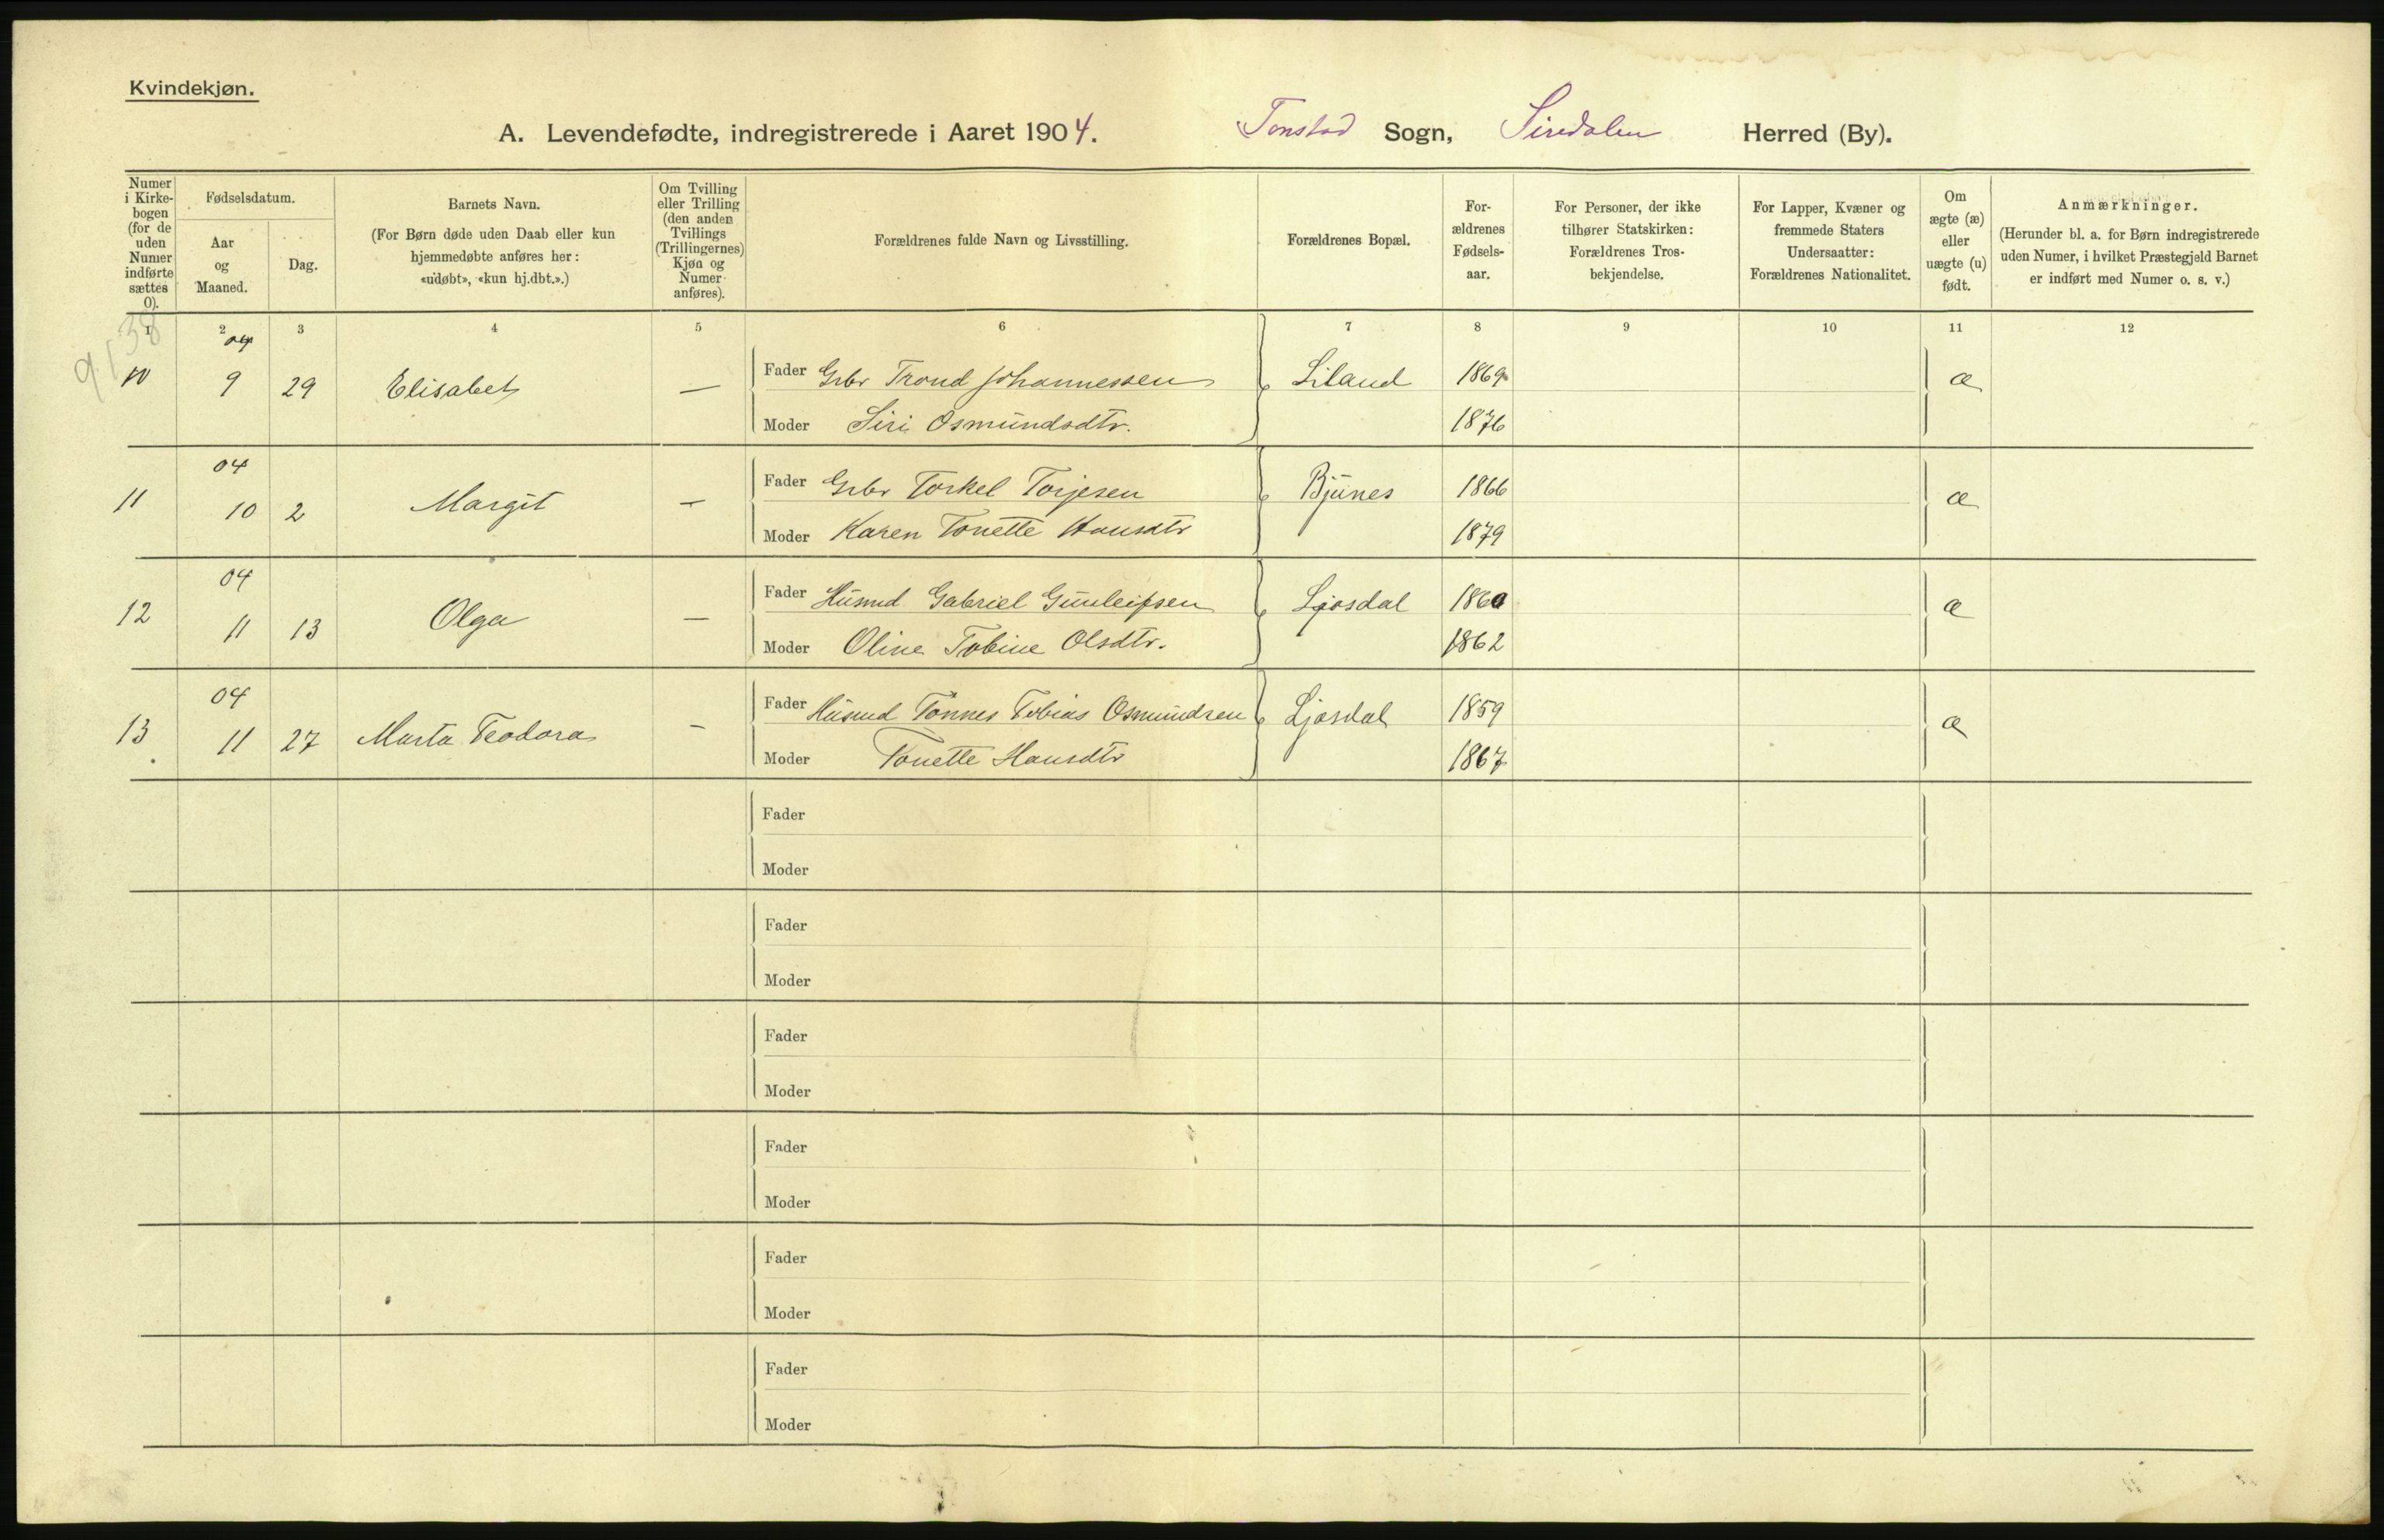 Kvindekjøn.
A. Levendefødte, indregistrerede i Aaret 1904. Tonstad Sogn, Siredalen Herred (By).
Numer i Kirkebogen (for de uden Numer indførte sættes 0).
Fødselsdatum.
Aar og Maaned.
Dag.
Barnets Navn.
(For Børn døde uden Daab eller kun
hjemmedøbte anføres her:
«udøbt», «kun hj.dbt.».)
Om Tvilling
eller Trilling
(den anden
Tvillings
(Trillingernes)
Kjøn og
Numer
anføres).
Forældrenes fulde Navn og Livsstilling.
Forældrenes Bopæl.
For-
ældrenes
Fødsels-
aar.
For Personer, der ikke
tilhører Statskirken:
Forældrenes Tros-
bekjendelse.
For Lapper, Kvæner og
fremmede Staters
Undersaatter:
Forældrenes Nationalitet.
Om
ægte (æ)
eller
uægte (u)
født.
Anmærkninger.
(Herunder bl. a. for Børn indregistrerede
uden Numer, i hvilket Præstegjeld Barnet
er indført med Numer o. s. v.)
1 2 3 4 5 6 7 8 9 10 11 12
04
10 9 29 Elisabet — Fader Gbr Trond Johannessen Liland 1869 æ
Moder Siri Osmundsdtr. 1876
04
11 10 2 Margit — Fader Gbr Torkel Torjesen Bjunes 1866 æ
Moder Karen Tonette Hansdtr 1879
04
12 11 13 Olga — Fader Husmd Gabriel Gunleifsen Ljosdal 1860 æ
Moder Oline Tobine Olsdtr. 1862
04
13 11 27 Marta Teodora — Fader Husmd Tønnes Tobias Osmundsen Ljosdal 1859 æ
Moder Tonette Hansdtr 1867
Fader
Moder
Fader
Moder
Fader
Moder
Fader
Moder
Fader
Moder
Fader
Moder